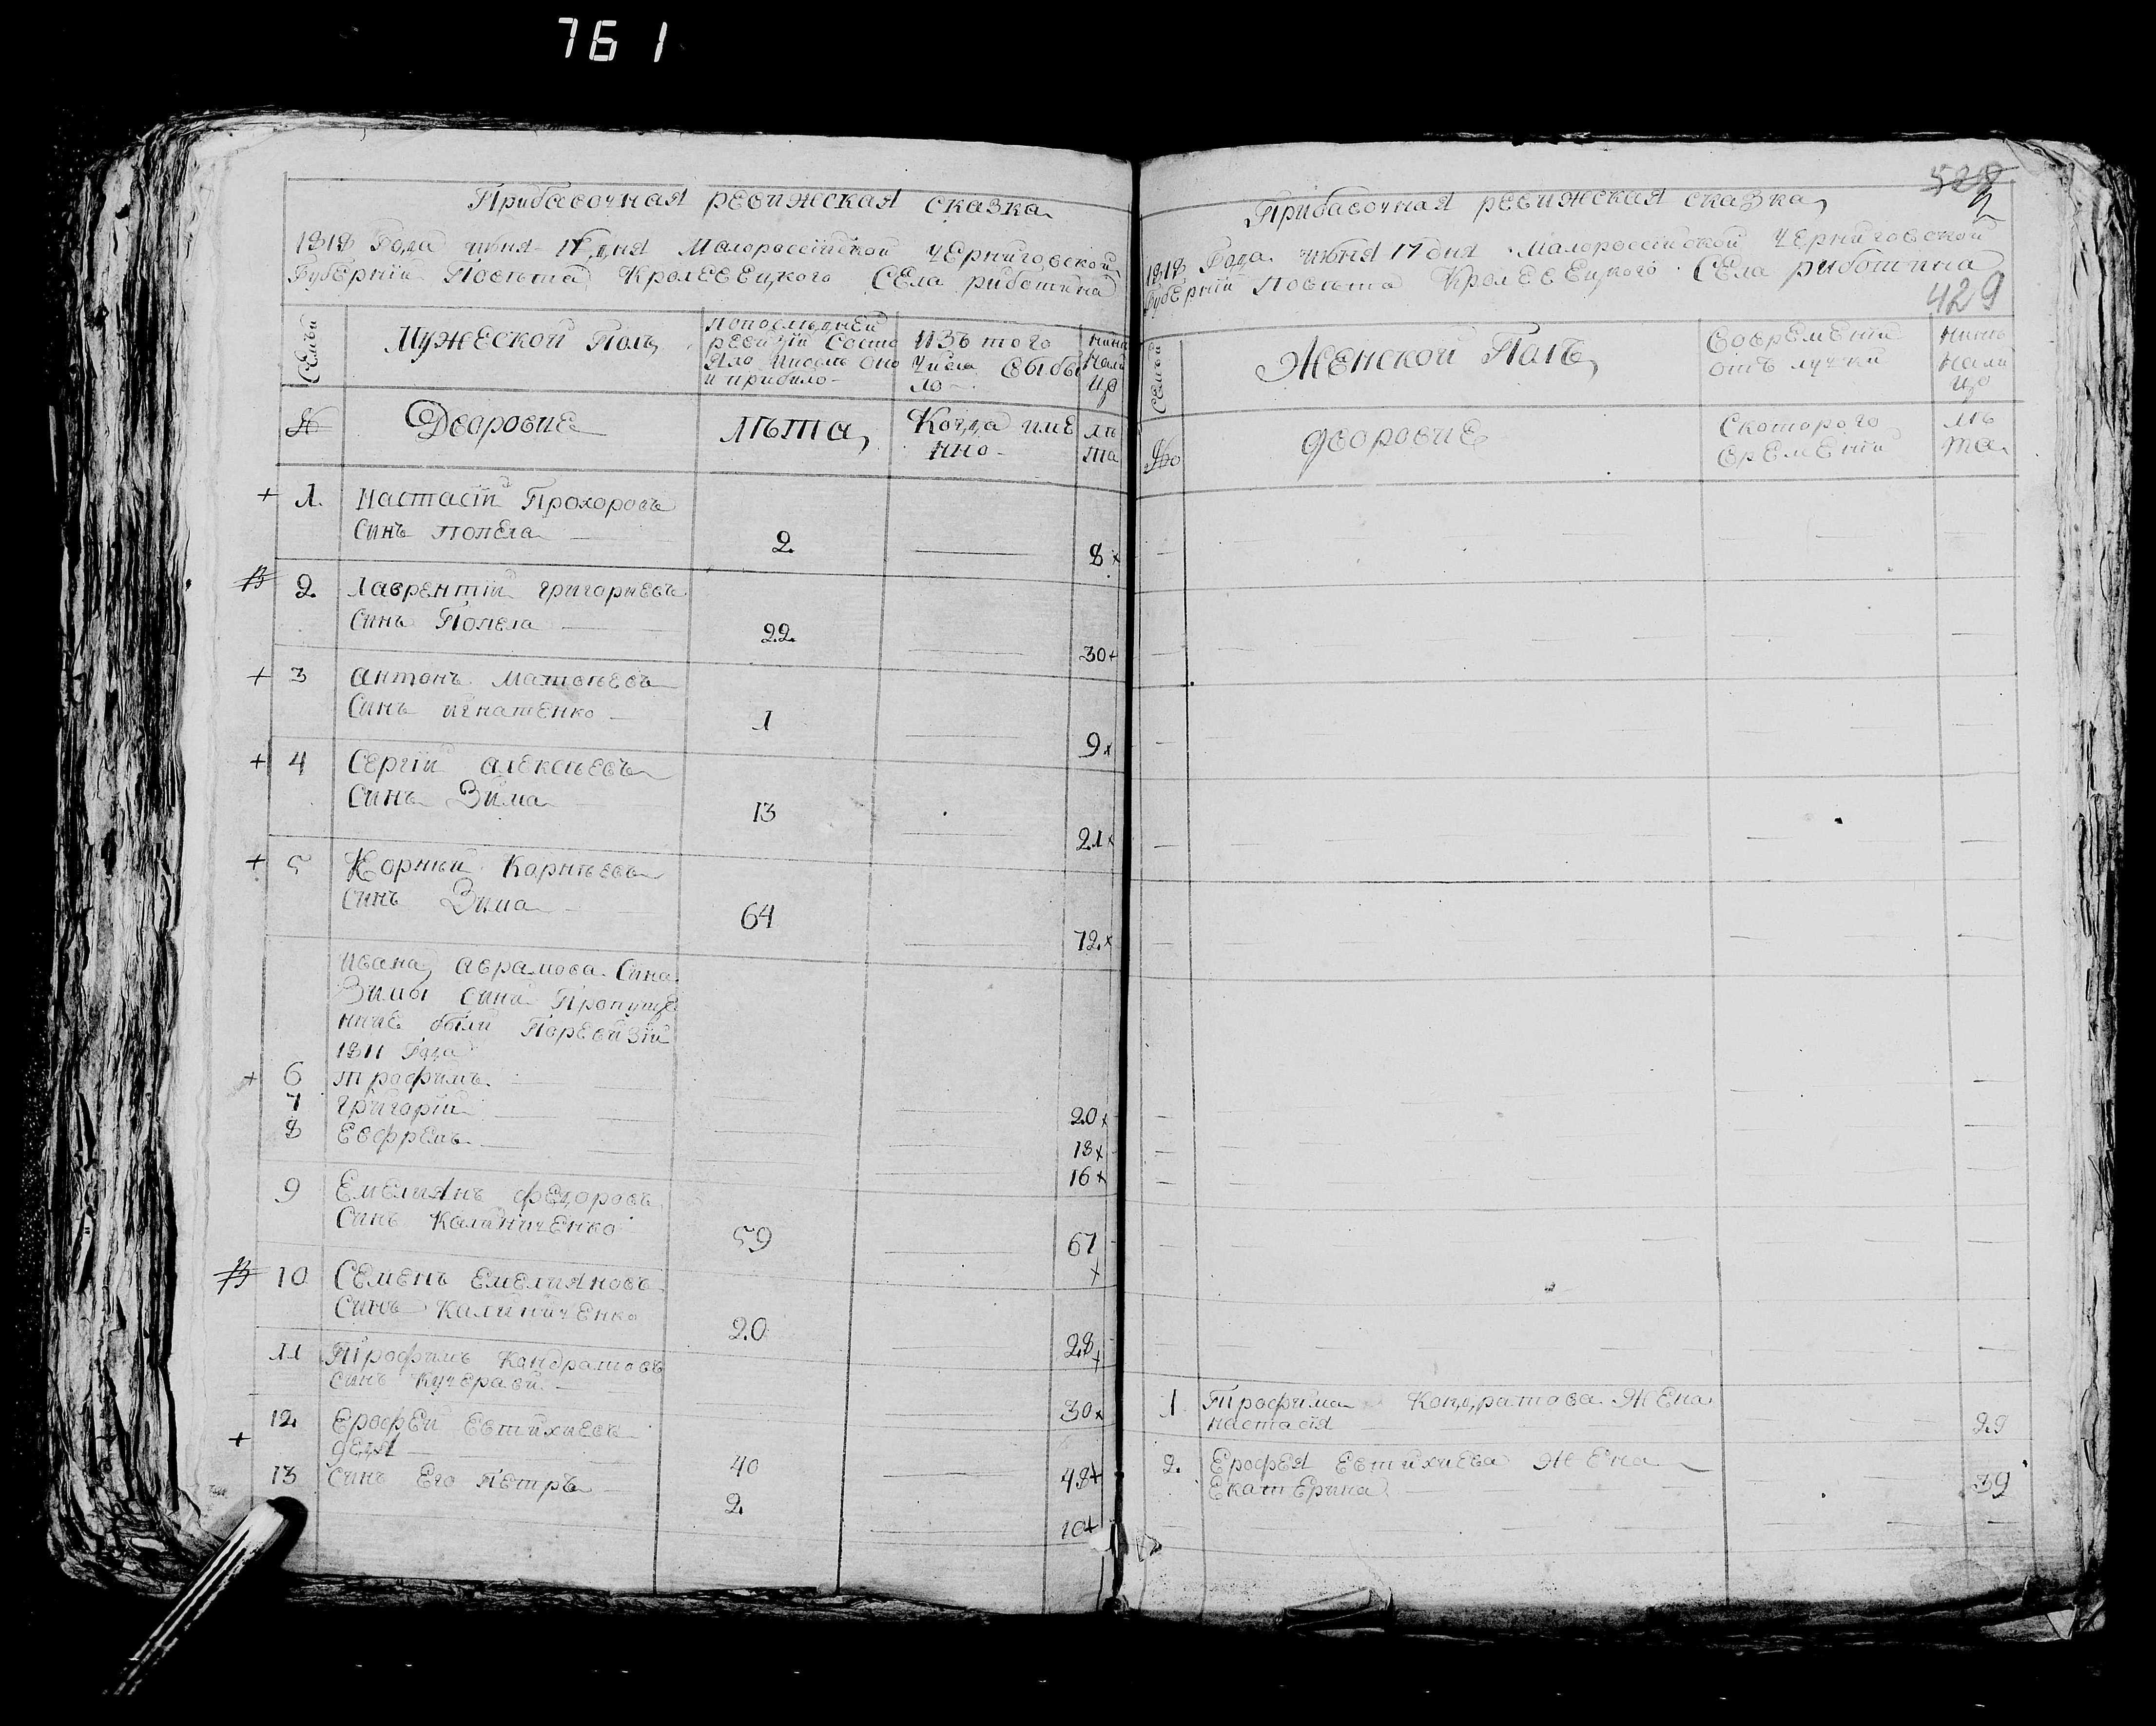 761
Прибавочная ревижская сказка
1818 Года июня 17 дня Малороссійской Черниговской
Губерніи Повѣта Кролевецкого Села риботина
Семьи
Мужеской Полъ
попослѣдней
ревизіи Состо
яло числом оно
и прибило
изъ того
Числа Выбы
ло
нинѣ
Нали
цо
№
Дворовие
лѣта
Когда име
нно
лѣ
та
1. Настасій Прохоровъ
Синъ попела 2. 8
2. Лаврентій григориевъ
Синъ Попела 22. 30
3 антонъ матвѣевъ
Синъ игнатенко 1 9
4 Сергій алексѣевъ
Синъ Зима 13 21
5 Корнѣй Корнѣевъ
Синъ Зима 64 72
ивана аврамова Сина
Зимы сини Пропуще
нние были Поревизіи
1811 Года
6 трофимъ 20
7 григорій 18
8 Евфремъ 16
9 Емелиянъ федоровъ
Синъ Калиниченко 59 67
10 Семенъ емелияновъ
Синъ Калиниченко 20 28
11 Трофимъ Кондратовъ
Синъ Кучеравй 30
12. Ерофей Евтихиевъ
40 48
13 Синъ Его петръ 2. 10
528
429
Прибавочная ревижская сказка
1818 Года июня 17 дня Малороссійской Черниговской
Губерніи Повѣта Кролевецкого Села риботина
Семьи
Женской Полъ
Вовременній
отълучкй
нинѣ
нали
цо
№
дворовие
Скоторого
временій
лѣ
та
1 Трофима Кондратова Жена
настасія 29
2. Ерофея Евтихиева Жена
Екатерина 39